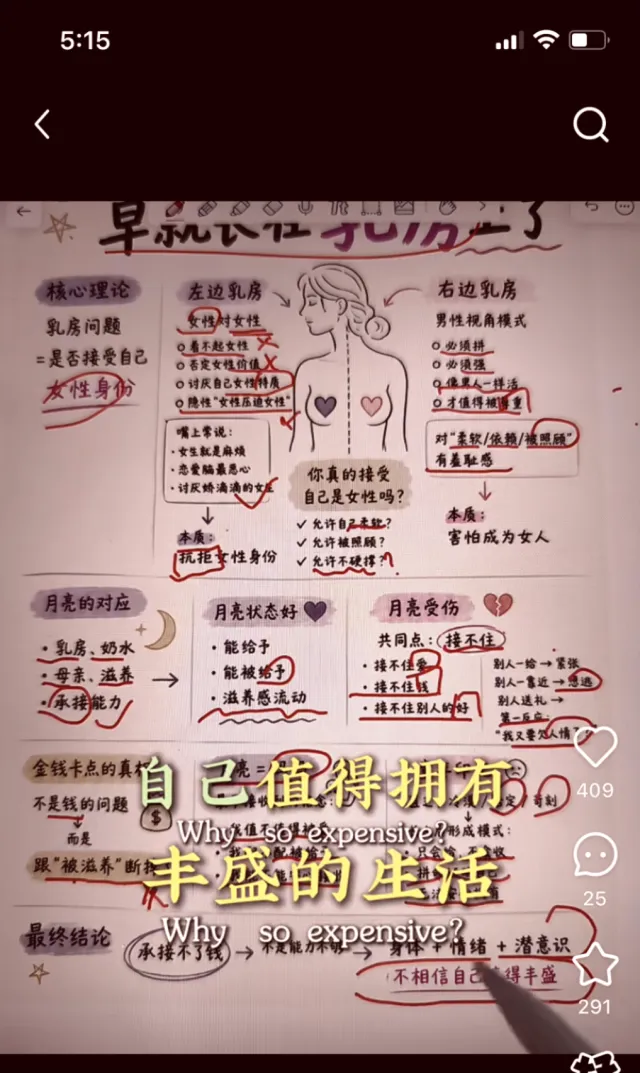 5:15
早就长在乳房上了
核心理论
乳房问题
=是否接受自己
女性身份
左边乳房
女性对女性
看不起女性
否定女性价值
讨厌自己女性特质
隐性"女性压迫女性"
嘴上常说:
·女生就是麻烦
·恋爱脑最恶心
·讨厌娇滴滴的女生
本质:
抗拒女性身份
你真的接受
自己是女性吗?
✓ 允许自己柔软?
✓ 允许被照顾?
✓ 允许不硬撑?
右边乳房
男性视角模式
必须拼
必须强
像男人一样活
才值得被尊重
对"柔软/依赖/被照顾"
有羞耻感
本质:
害怕成为女人
月亮的对应
·乳房、奶水
·母亲、滋养
·承接能力
月亮状态好
·能给予
·能被给予
·滋养感流动
月亮受伤
共同点:接不住
·接不住爱
·接不住钱
·接不住别人的好
别人一给→紧张
别人一靠近→想逃
别人送礼→
第一反应:
"我又要欠人情了"
金钱卡点的真相
不是钱的问题
而是
跟"被滋养"断
形成模式:
自己值得拥有
Why so expensive?
丰盛的生活
Why so expensive?
最终结论
承接不了钱
→不是能力不够
→身体+情绪+潜意识
不相信自己值得丰盛
409
25
291